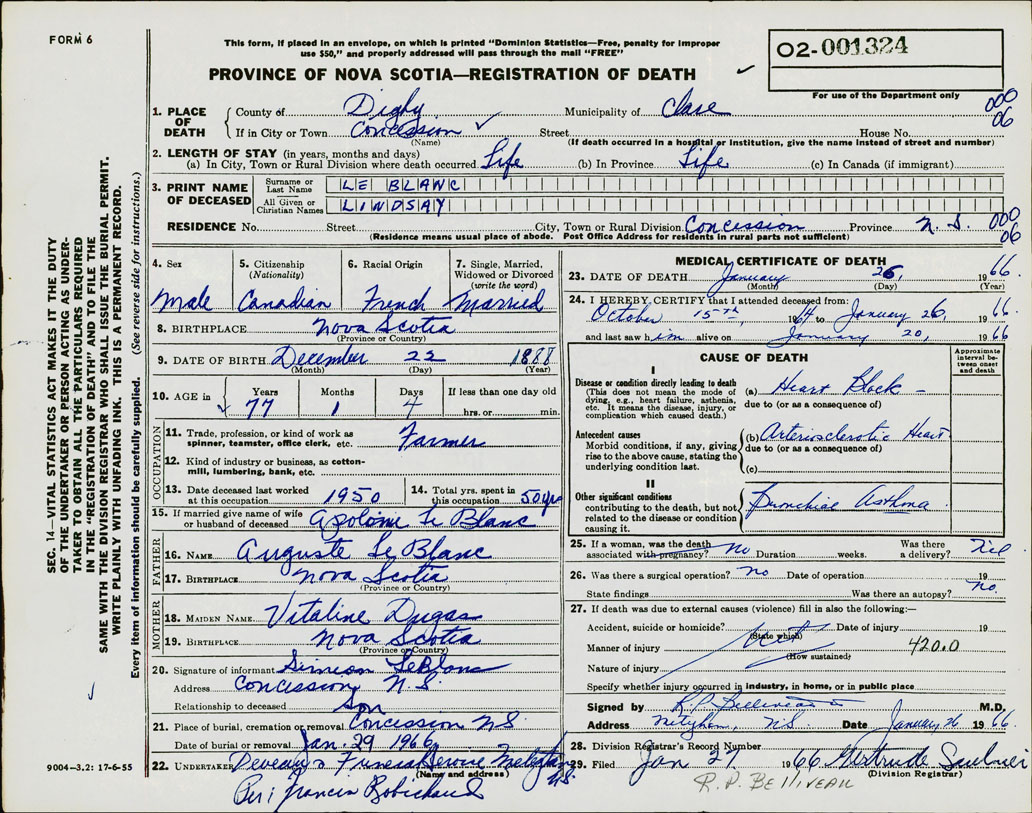 FORM 6
This form, if placed in an envelope, on which is printed "Dominion Statistics—Free, penalty for improper
use $50," and properly addressed will pass through the mail "FREE"
PROVINCE OF NOVA SCOTIA—REGISTRATION OF DEATH
02-001324
For use of the Department only
000
06
1. PLACE OF DEATH
County of Digby Municipality of Clare
If in City or Town Concession Street House No.
(Name) (If death occurred in a hospital or institution, give the name instead of street and number)
2. LENGTH OF STAY (in years, months and days)
(a) In City, Town or Rural Division where death occurred Life (b) In Province Life (c) In Canada (if immigrant)
3. PRINT NAME OF DECEASED
Surname or Last Name LE BLANC
All Given or Christian Names LINDSAY
RESIDENCE No. Street City, Town or Rural Division Concession Province N.S. 000
(Residence means usual place of abode. Post Office Address for residents in rural parts not sufficient) 06
4. Sex 5. Citizenship (Nationality) 6. Racial Origin 7. Single, Married, Widowed or Divorced (write the word)
Male Canadian French Married
8. BIRTHPLACE Nova Scotia
(Province or Country)
9. DATE OF BIRTH December 22 1888
(Month) (Day) (Year)
10. AGE in Years Months Days If less than one day old
77 1 4 hrs. or min.
OCCUPATION
11. Trade, profession, or kind of work as spinner, teamster, office clerk, etc. Farmer
12. Kind of industry or business, as cotton-mill, lumbering, bank, etc.
13. Date deceased last worked at this occupation 1950 14. Total yrs. spent in this occupation 50 yrs
15. If married give name of wife or husband of deceased Apolonie Le Blanc
FATHER
16. NAME Auguste Le Blanc
17. BIRTHPLACE Nova Scotia
(Province or Country)
MOTHER
18. MAIDEN NAME Vitaline Dugas
19. BIRTHPLACE Nova Scotia
(Province or Country)
20. Signature of informant Simeon LeBlanc
Address Concession, N.S.
Relationship to deceased Son
21. Place of burial, cremation or removal Concession N.S.
Date of burial or removal Jan. 29 1966
22. UNDERTAKER Deveau's Funeral Service Meteghan N.S.
(Name and address)
Per: Francis Robichaud
MEDICAL CERTIFICATE OF DEATH
23. DATE OF DEATH January 26, 1966.
(Month) (Day) (Year)
24. I HEREBY CERTIFY that I attended deceased from:
October 15th, 1964 to January 26, 1966.
and last saw him alive on January 20, 1966
CAUSE OF DEATH
Approximate interval between onset and death
I
Disease or condition directly leading to death
(This does not mean the mode of dying, e.g., heart failure, asthenia, etc. It means the disease, injury, or complication which caused death.)
(a) Heart Block
due to (or as a consequence of)
Antecedent causes
Morbid conditions, if any, giving rise to the above cause, stating the underlying condition last.
(b) Arteriosclerotic Heart
due to (or as a consequence of)
(c)
II
Other significant conditions
contributing to the death, but not related to the disease or condition causing it.
Bronchial Asthma
25. If a woman, was the death associated with pregnancy? no Duration weeks. Was there a delivery?
26. Was there a surgical operation? no Date of operation 19
State findings Was there an autopsy? no.
27. If death was due to external causes (violence) fill in also the following:—
Accident, suicide or homicide? Date of injury 19
(State which)
Manner of injury 420.0
(How sustained)
Nature of injury
Specify whether injury occurred in industry, in home, or in public place
Signed by R.P. Belliveau M.D.
Address Meteghan, NS Date January 26 1966.
28. Division Registrar's Record Number
29. Filed Jan 27 1966 Gertrude Saulnier
(Division Registrar)
R.P. BELLIVEAU
SEC. 14—VITAL STATISTICS ACT MAKES IT THE DUTY
OF THE UNDERTAKER OR PERSON ACTING AS UNDER-
TAKER TO OBTAIN ALL THE PARTICULARS REQUIRED
IN THE "REGISTRATION OF DEATH" AND TO FILE THE
SAME WITH THE DIVISION REGISTRAR WHO SHALL ISSUE THE BURIAL PERMIT.
WRITE PLAINLY WITH UNFADING INK. THIS IS A PERMANENT RECORD.
Every item of information should be carefully supplied. (See reverse side for instructions.)
9004-3.2: 17-6-55